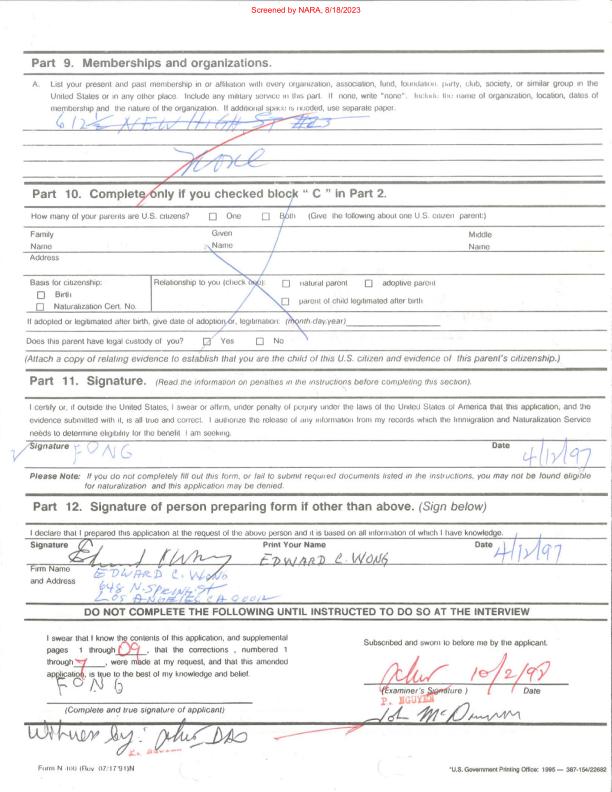 Screened by NARA, 8/18/2023
Part 9. Memberships and organizations.
A. List your present and past membership in or affiliation with every organization, association, fund, foundation, party, club, society, or similar group in the
United States or in any other place. Include any military service in this part. If none, write "none". Include the name of organization, location, dates of
membership and the nature of the organization. If additional space is needed, use separate paper.
612½ NEW HIGH ST #23
None
Part 10. Complete only if you checked block " C " in Part 2.
How many of your parents are U.S. citizens? One Both (Give the following about one U.S. citizen parent:)
Family Name Given Name Middle Name
Address
Basis for citizenship: Relationship to you (check one): natural parent adoptive parent
Birth
Naturalization Cert. No. parent of child legitimated after birth
If adopted or legitimated after birth, give date of adoption or, legitimation: (month-day-year)
Does this parent have legal custody of you? Yes No
(Attach a copy of relating evidence to establish that you are the child of this U.S. citizen and evidence of this parent's citizenship.)
Part 11. Signature. (Read the information on penalties in the instructions before completing this section).
I certify or, if outside the United States, I swear or affirm, under penalty of perjury under the laws of the United States of America that this application, and the
evidence submitted with it, is all true and correct. I authorize the release of any information from my records which the Immigration and Naturalization Service
needs to determine eligibility for the benefit I am seeking.
Signature FONG Date 4/12/97
Please Note: If you do not completely fill out this form, or fail to submit required documents listed in the instructions, you may not be found eligible
for naturalization and this application may be denied.
Part 12. Signature of person preparing form if other than above. (Sign below)
I declare that I prepared this application at the request of the above person and it is based on all information of which I have knowledge.
Signature Print Your Name EDWARD C. WONG Date 4/12/97
Firm Name and Address EDWARD C. WONG
648 N. SPRING ST
LOS ANGELES CA 90012
DO NOT COMPLETE THE FOLLOWING UNTIL INSTRUCTED TO DO SO AT THE INTERVIEW
I swear that I know the contents of this application, and supplemental
pages 1 through 09, that the corrections, numbered 1
through 7, were made at my request, and that this amended
application, is true to the best of my knowledge and belief.
FONG
(Complete and true signature of applicant)
Subscribed and sworn to before me by the applicant.
10/2/98
(Examiner's Signature ) Date
P. NGUYEN
Witness by: DAO
Form N-400 (Rev. 07/17/91)N
*U.S. Government Printing Office: 1995 — 387-154/22682